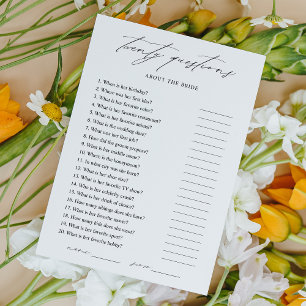 twenty questions
ABOUT THE BRIDE
1. What is her birthday?
2. Where was her first kiss?
3. What is her favorite color?
4. What is her favorite restaurant?
5. What is her favorite season?
6. What is the wedding date?
7. What was her first job?
8. How did the groom propose?
9. What is her middle name?
10. Where is the honeymoon?
11. In what city was she born?
12. What is her shoe size?
13. What is her favorite TV show?
14. Who is her celebrity crush?
15. What is her drink of choice?
16. How many siblings does she have?
17. What is her favorite movie?
18. How many tattoos does she have?
19. What is her favorite sport?
20. What is her favorite hobby?
name